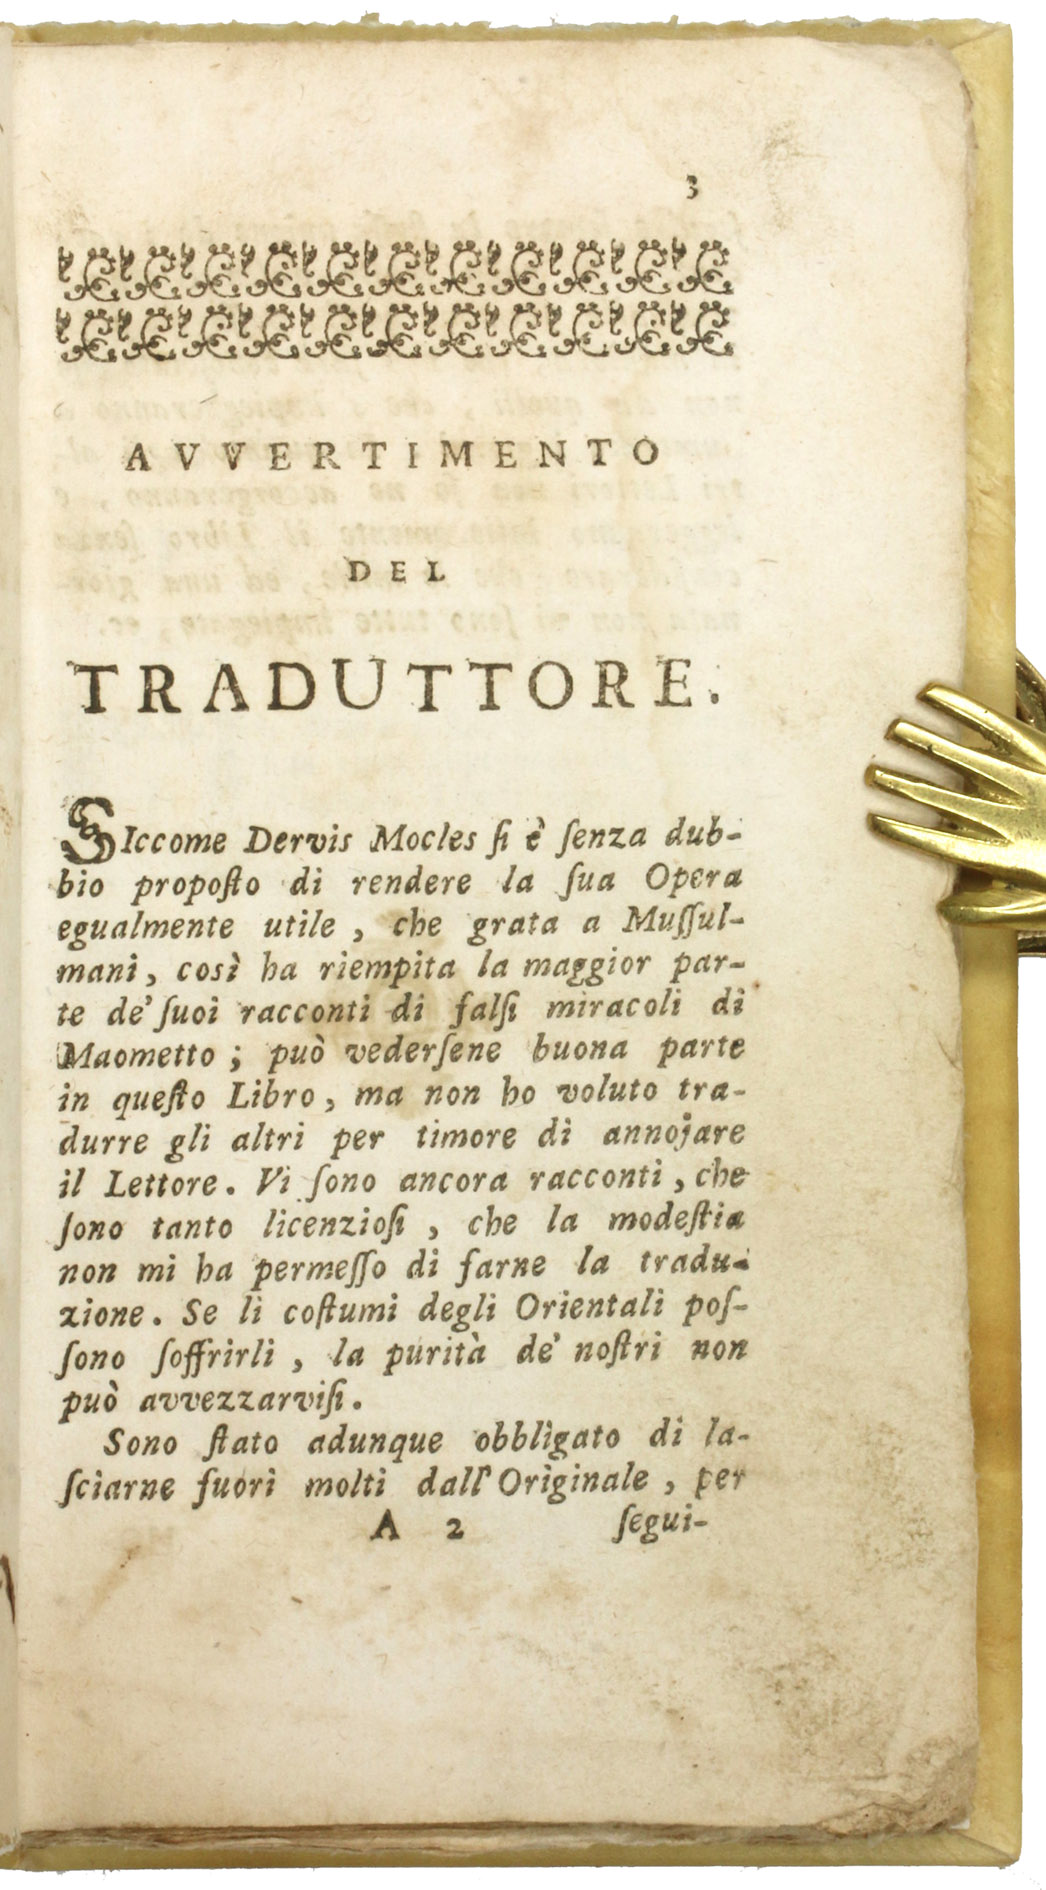 3
AVVERTIMENTO
DEL
TRADUTTORE.
SIccome Dervis Mocles ſi è ſenza dub-
bio propoſto di rendere la ſua Opera
egualmente utile, che grata a Muſſul-
mani, così ha riempita la maggior par-
te de' ſuoi racconti di falſi miracoli di
Maometto; può vederſene buona parte
in queſto Libro, ma non ho voluto tra-
durre gli altri per timore di annojare
il Lettore. Vi ſono ancora racconti, che
ſono tanto licenzioſi, che la modeſtia
non mi ha permeſſo di farne la tradu-
zione. Se li coſtumi degli Orientali poſ-
ſono ſoffrirli, la purità de' noſtri non
può avvezzarviſi.
Sono ſtato adunque obbligato di la-
ſciarne fuori molti dall' Originale, per
A 2 ſegui-